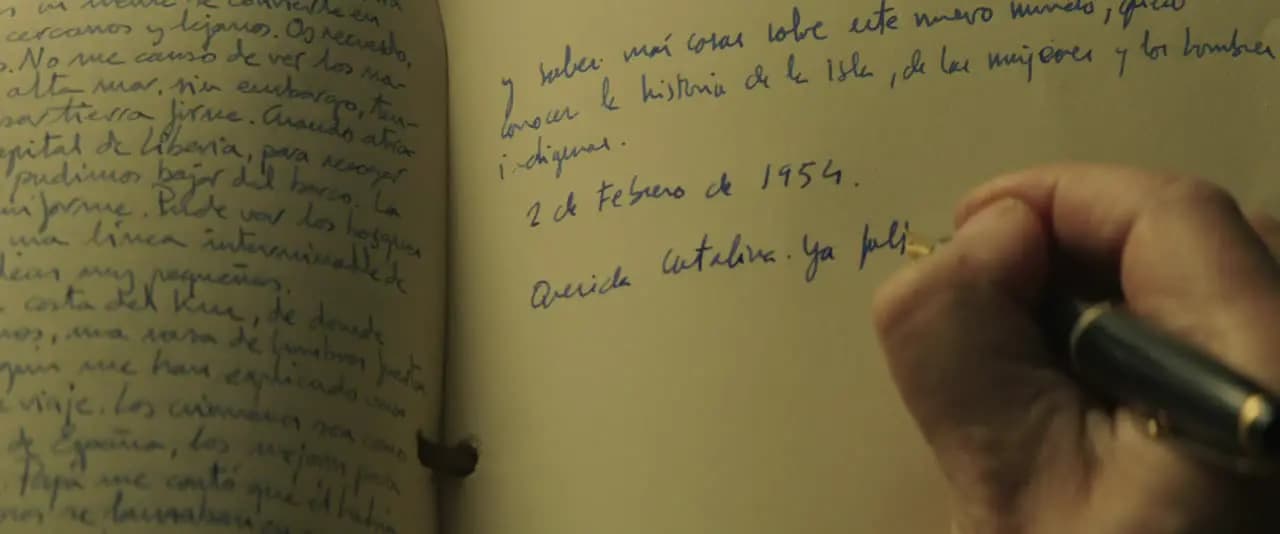 se convierte en
cercanos y lejanos. Os recuerdo,
No me canso de ver los
alta mar, sin embargo,
tierra firme. Cuando
de Liberia, para recoger
pudimos bajar del barco. La
informe. Pude ver los bosques
una línea interminable de
muy pequeñas.
costa del Kru, de donde
una raza de hombres
me han explicado
viaje. Los
de España, los mejores para
Papá me contó que él había
se
y saber más cosas sobre este nuevo mundo,
conocer la historia de la isla, de las mujeres y los hombres
indígenas.
2 de Febrero de 1954.
Querida Catalina. Ya sali